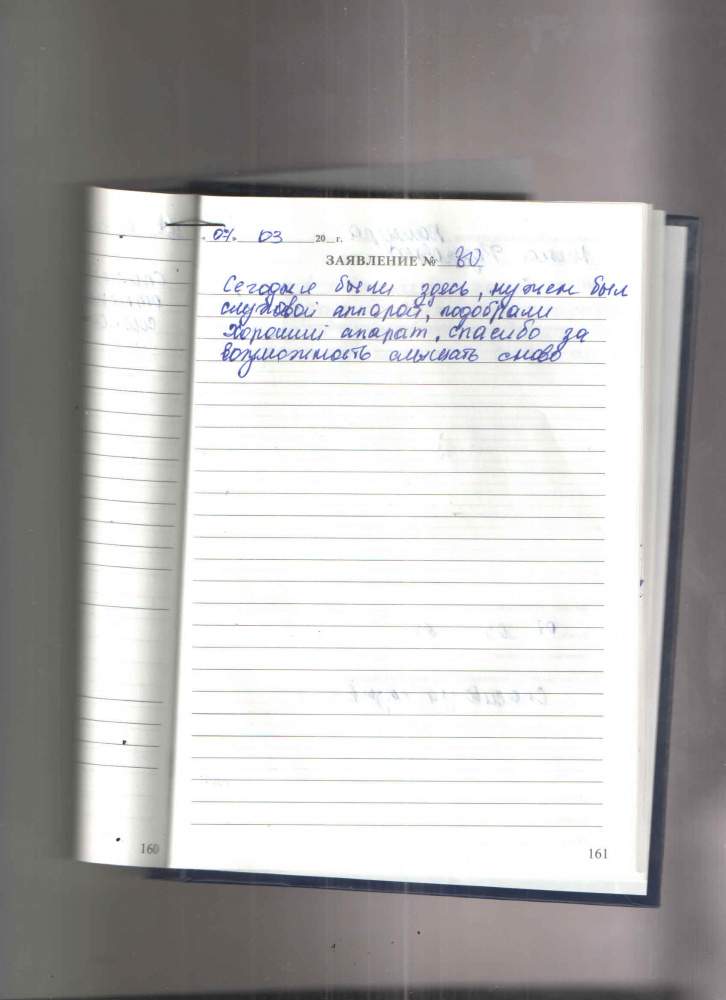 07. 03 20 г.
ЗАЯВЛЕНИЕ № 80
Сегодня были здесь, нужен был
слуховой аппарат, подобрали
хороший апарат, спасибо за
возможность слышать снова
160
161